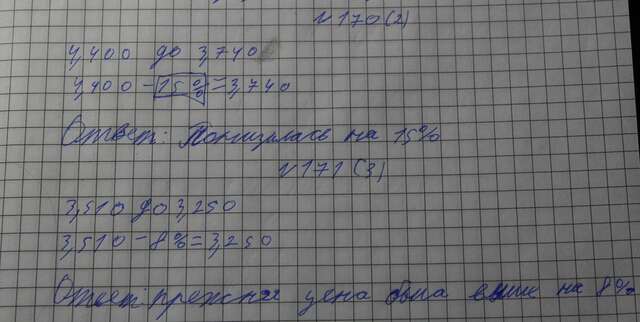 №170(2)
4,400 до 3,740
4,400 - 15% = 3,740
Ответ: Понизилась на 15%
№171(3)
3,510 до 3,250
3,510 - 8% = 3,250
Ответ: прежняя цена была выше на 8%